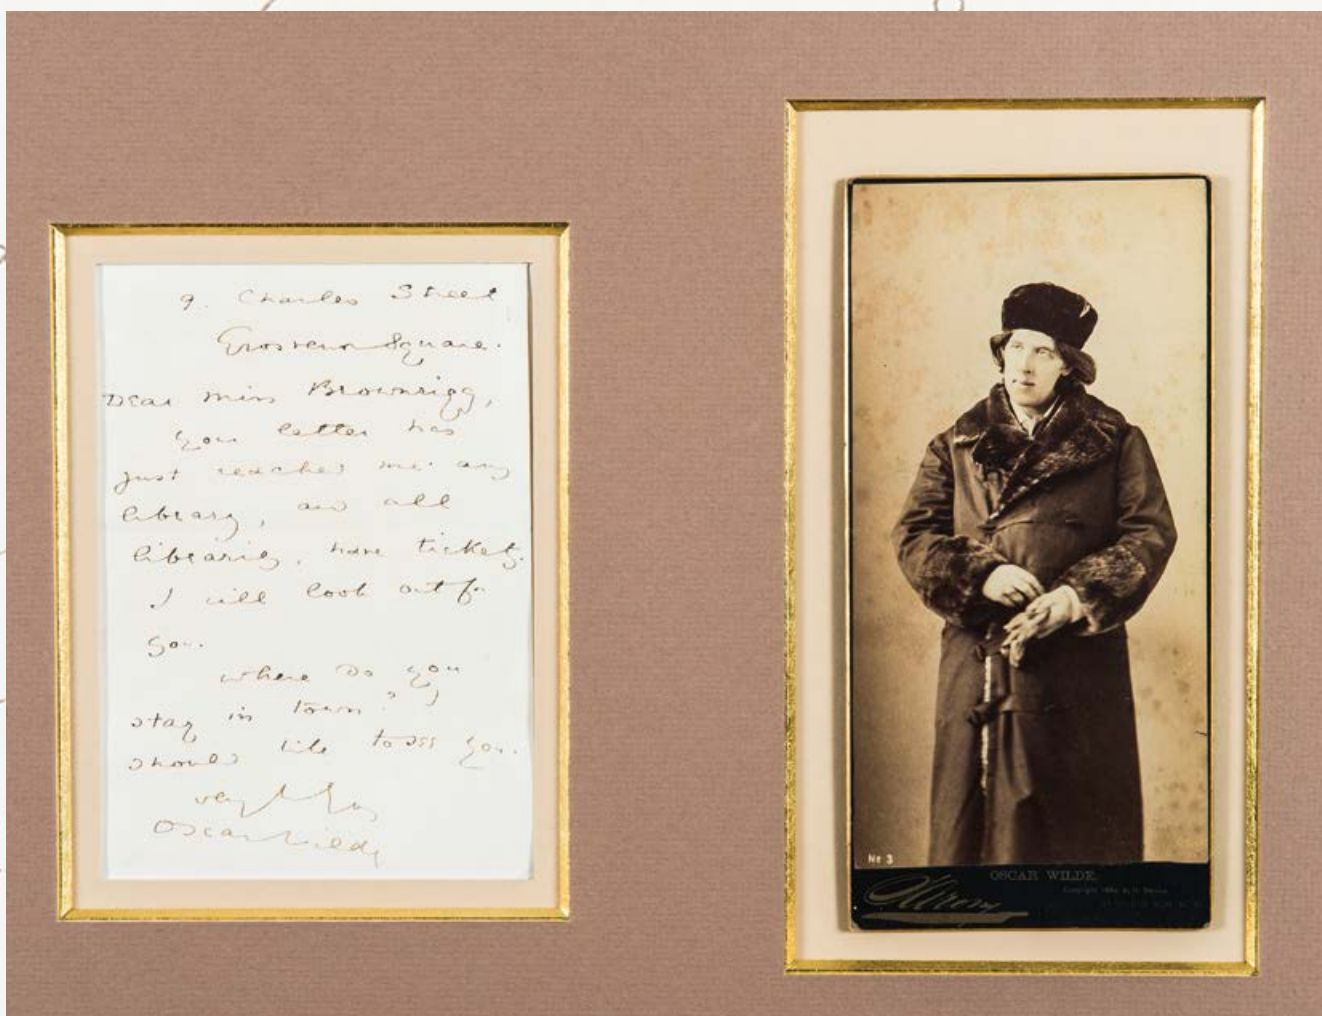 9. Charles Street
Grosvenor Square.
Dear Miss Brownrigg,
your letter has
just reached me. any
library, and all
libraries, have tickets.
I will look out for
you.
where do you
stay in town? I
should like to see you.
very truly yours
Oscar Wilde
No 3
OSCAR WILDE.
Sarony